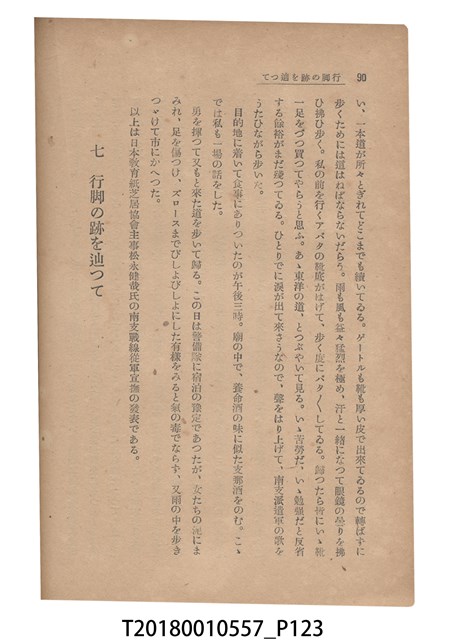 行脚の跡を辿つて
90
い、一本道が所々とぎれてどこまでも續いてゐる。ゲートルも靴も厚い皮で出來てゐるので轉ばずに
歩くためには道はねばならないだらう。雨も風も益々猛烈を極め、汗と一緒になつて眼鏡の曇りを拂
ひ拂ひ歩く。私の前を行くアバタの靴底がはげて、歩く度にバタ〳〵してゐる。歸つたら皆にいゝ靴
一足をづつ買つてやらうと思ふ。あゝ東洋の道、とつぶやいて見る。いゝ苦勞だ、いゝ勉强だと反省
する餘裕がまだ殘つてゐる。ひとりでに淚が出て來さうなので、聲をはり上げて、南支派遣軍の歌を
うたひながら歩いた。
目的地に着いて食事にありついたのが午後三時。廟の中で、養命酒の味に似た支那酒をのむ。こゝ
では私も一場の話をした。
勇を揮つて又もと來た道を歩いて歸る。この日は警備隊に宿泊の豫定であつたが、女たちの泥にま
みれ、足を傷つけ、ズロースまでびしよびしよにした有樣をみると氣の毒でならず、又雨の中を歩き
つゞけて市にかへつた。
以上は日本敎育紙芝居協會主事松永健哉氏の南支戰線從軍宣撫の發表である。
七 行脚の跡を辿つて
T20180010557_P123